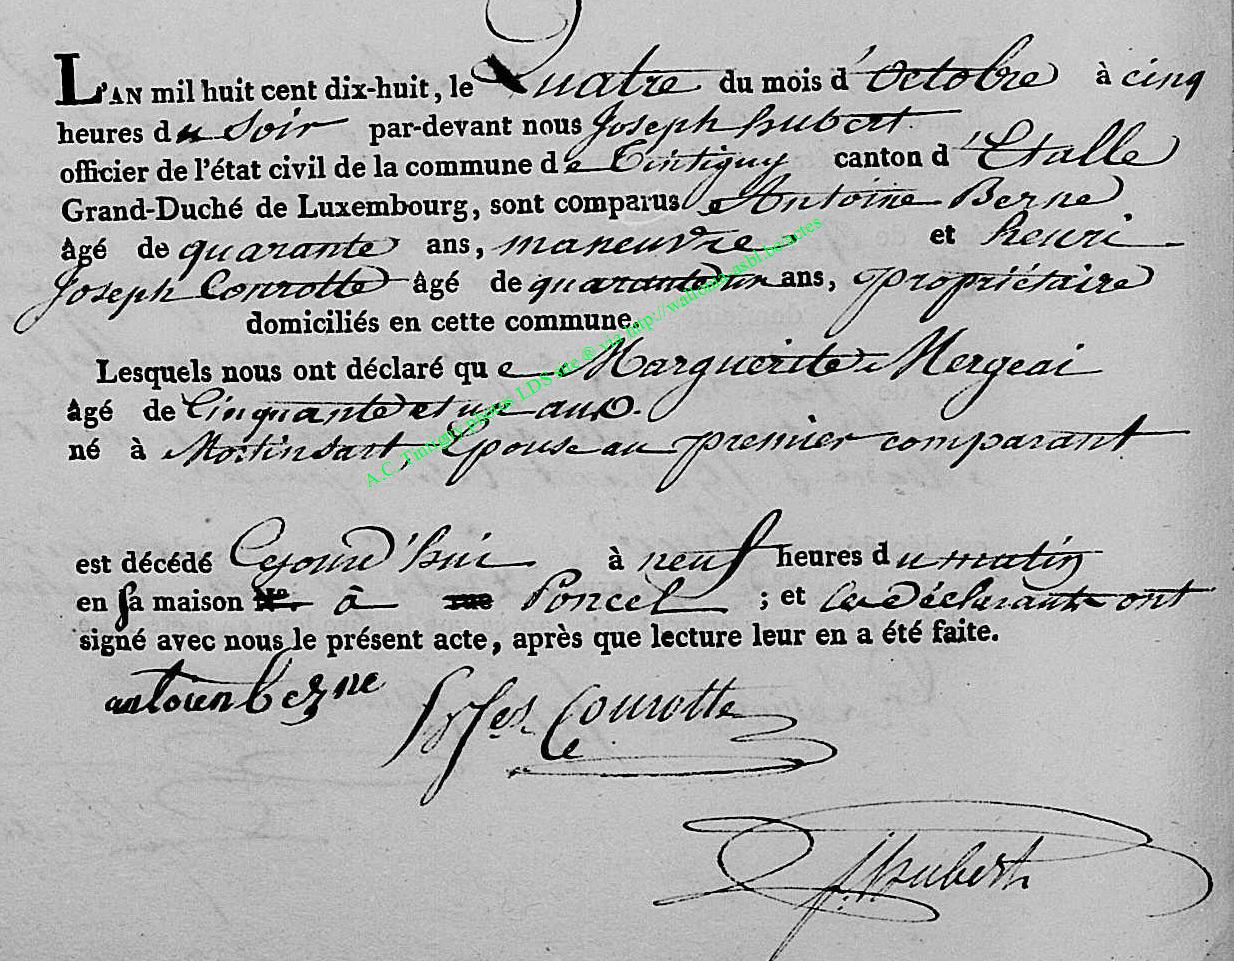 L'AN mil huit cent dix-huit, le Quatre du mois d'Octobre à cinq
heures du Soir par-devant nous Joseph hubert
officier de l'état civil de la commune de Tintigny canton d'Etalle
Grand-Duché de Luxembourg, sont comparus Antoine Berne
âgé de quarante ans, maneuvre et henri
Joseph Conrotte âgé de quarante un ans, propriétaire
domiciliés en cette commune.
Lesquels nous ont déclaré que Marguerite Mergeai
âgé de Cinquante et un ans.
né à Mortinsart, Epouse au premier comparant
est décédé Cejourd'hui à neuf heures du matin
en sa maison N.o à rue Poncel ; et les Déclarants ont
signé avec nous le présent acte, après que lecture leur en a été faite.
antoien berne
Conrotte
hubert
A.C. Tintigny photos LDS site ® via http://wallonia-asbl.be/actes